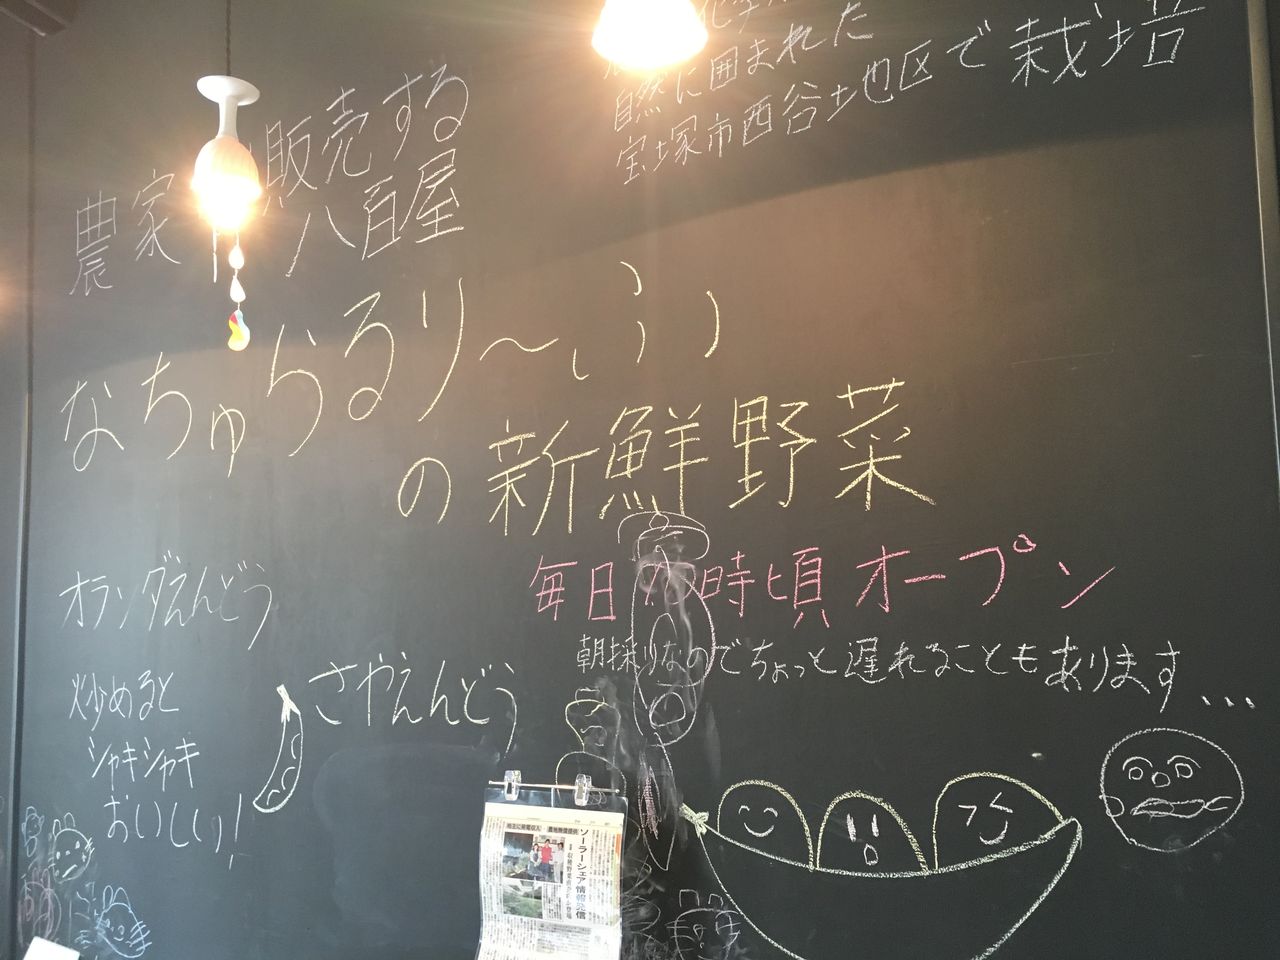 農家 販売する
八百屋
自然に囲まれた
宝塚市西谷地区で栽培
なちゅらるり〜ふ
の新鮮野菜
毎日 時頃オープン
朝採りなのでちょっと遅れることもあります...
オランダえんどう
さやえんどう
炒めると
シャキシャキ
おいしい!
ソーラーシェア情報発信